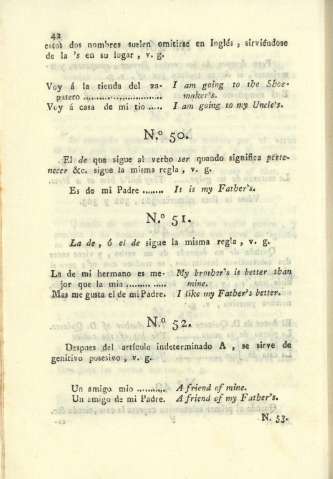 42
estos dos nombres suelen omitirse en Inglés , sirviéndose
de la 's en su lugar , v. g.
Voy á la tienda del za- I am going to the Shoe-
patero .................... maker's.
Voy á casa de mi tio ..... I am going to my Uncle's.
N.º 50.
El de que sigue al verbo ser quando significa perte-
necer &c. sigue la misma regla , v. g.
Es de mi Padre ........ It is my Father's.
N.º 51.
La de , ó el de sigue la misma regla , v. g.
La de mi hermano es me- My brother's is better than
jor que la mia ............. mine.
Mas me gusta el de mi Padre. I like my Father's better.
N.º 52.
Despues del artículo indeterminado A , se sirve de
genitivo posesivo , v. g.
Un amigo mio .......... A friend of mine.
Un amigo de mi Padre. A friend of my Father's.
N. 53.